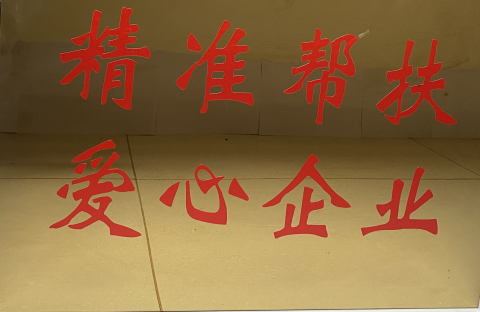 精准帮扶
爱心企业